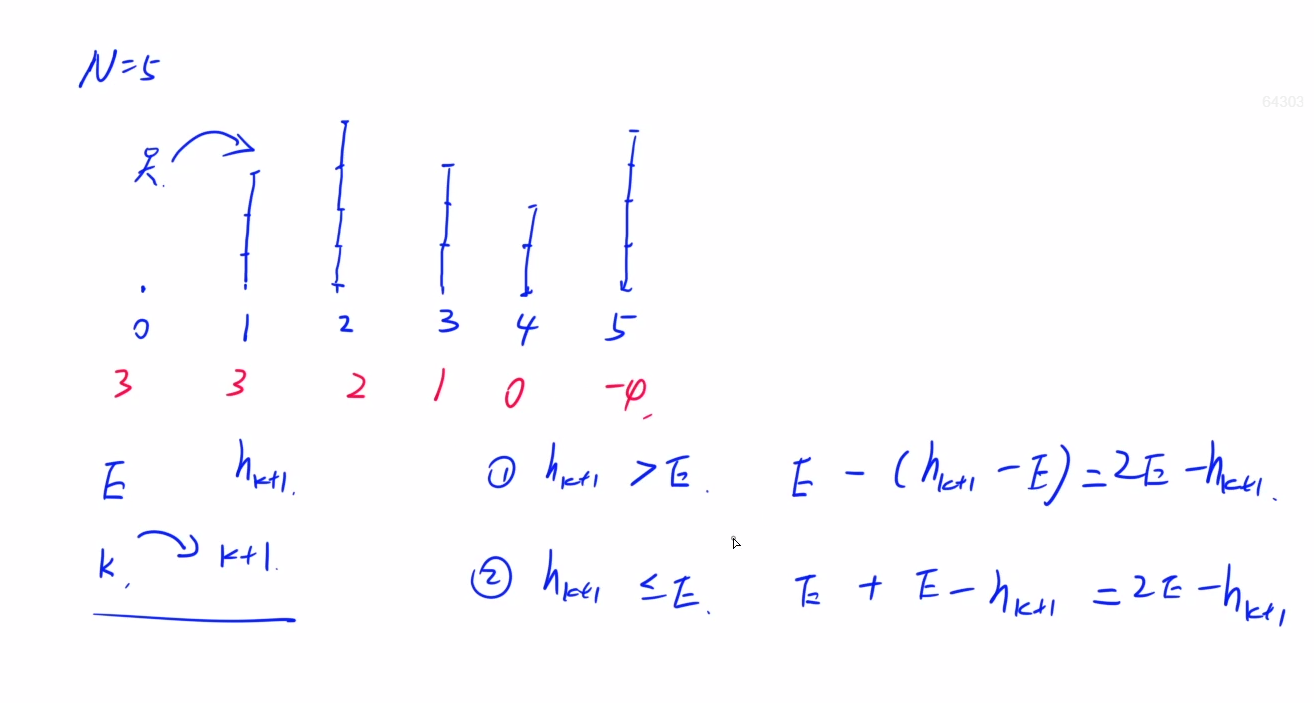 N=5
64303
0 1 2 3 4 5
3 3 2 1 0 -4
E h_{k+1} ① h_{k+1} > E. E - (h_{k+1} - E) = 2E - h_{k+1}.
k, k+1. ② h_{k+1} ≤ E. E + E - h_{k+1} = 2E - h_{k+1}